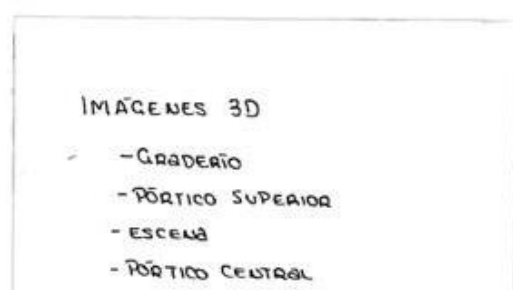 IMÁGENES 3D
- GRADERÍO
- PÓRTICO SUPERIOR
- ESCENA
- PÓRTICO CENTRAL